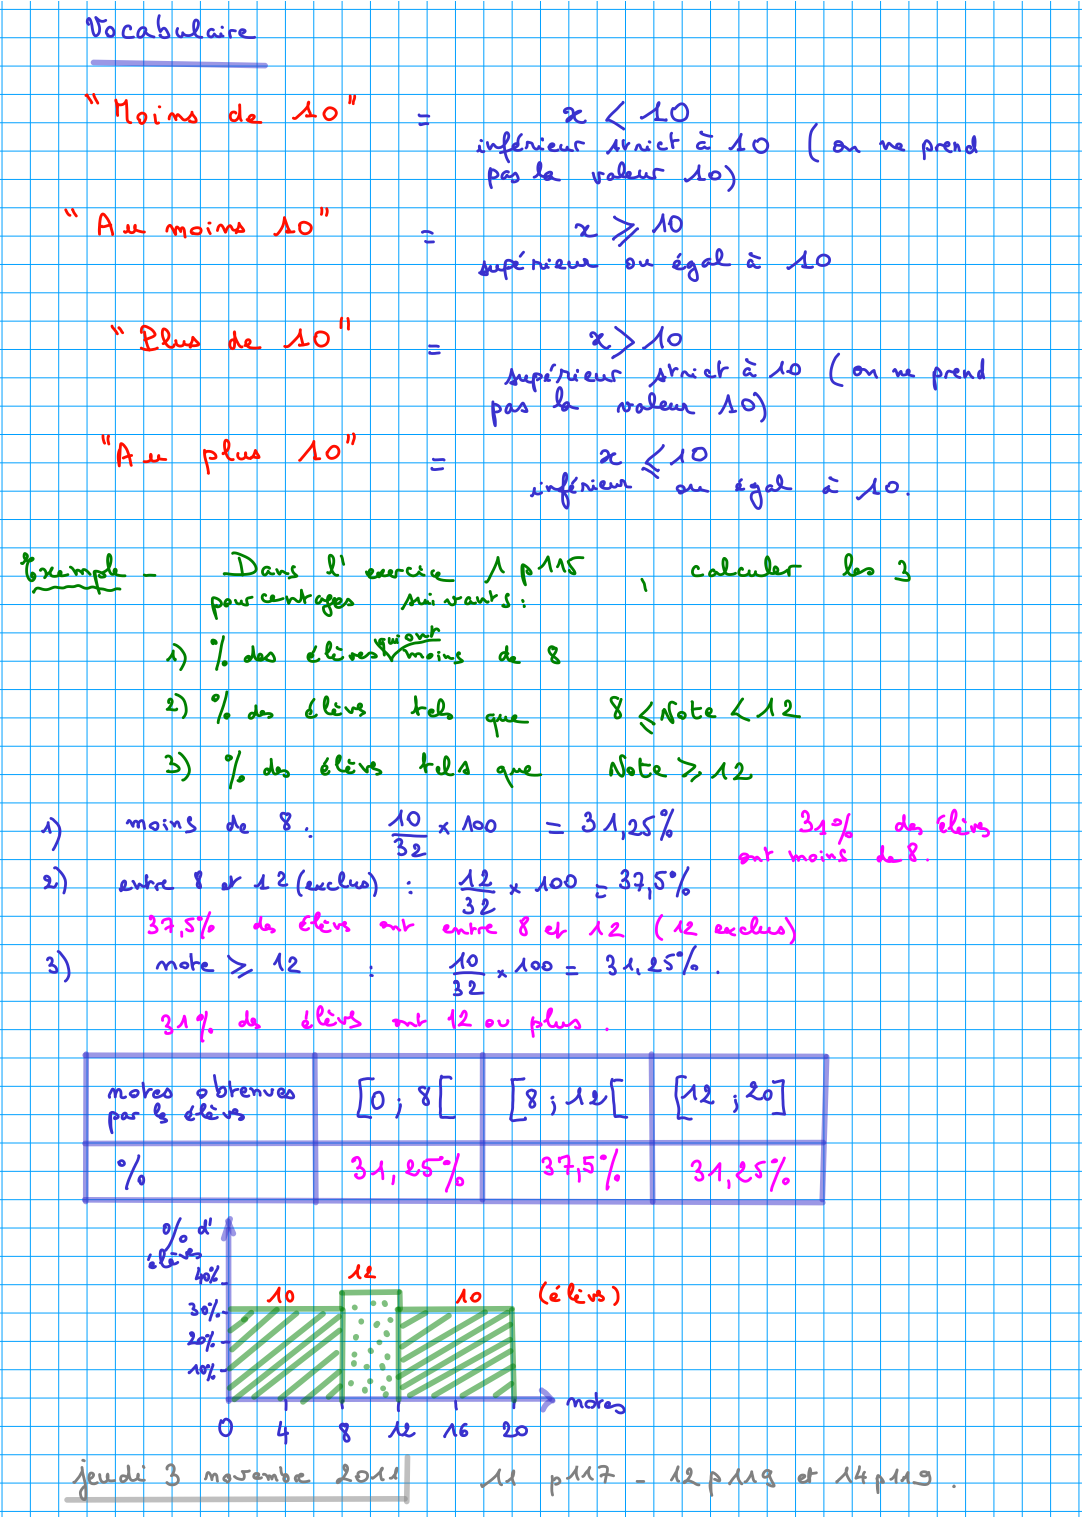 Vocabulaire
"Moins de 10" = x < 10
inférieur strict à 10 (on ne prend
pas la valeur 10)
"Au moins 10" = x ⩾ 10
supérieur ou égal à 10
"Plus de 10" = x > 10
supérieur strict à 10 (on ne prend
pas la valeur 10)
"Au plus 10" = x ⩽ 10
inférieur ou égal à 10.
Exemple - Dans l'exercice 1 p 115, calculer les 3
pourcentages suivants:
1) % des élèves qui ont moins de 8
2) % des élèvs tels que 8 ⩽ Note < 12
3) % des élèvs tels que Note ⩾ 12
1) moins de 8 : 10/32 × 100 = 31,25% 31% des élèvs
ont moins de 8.
2) entre 8 et 12 (exclus) : 12/32 × 100 = 37,5%
37,5% des élèvs ont entre 8 et 12 (12 exclus)
3) note ⩾ 12 : 10/32 × 100 = 31,25%.
31% des élèvs ont 12 ou plus.
notes obtenues
par ls élèvs
[0 ; 8[ [8 ; 12[ [12 ; 20]
% 31,25% 37,5% 31,25%
% d'
élèves
40%
30%
20%
10%
10 12 10 (élèvs)
0 4 8 12 16 20 notes
jeudi 3 novembre 2011 11 p117 - 12 p119 et 14 p119.